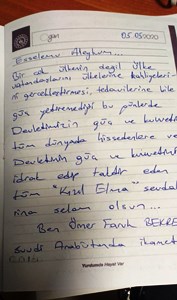 gün 05.05.2020
Esselamu Aleykum...
Bir çok ülkenin değil ülke
vatandaşlarını ülkelerine tahliyeleri-
ni gerçekleştirmesi, tedavilerine bile
güç yetiremediği bu günlerde
Devletimizin güç ve kuvvetini
tüm dünyada hissedenlere ve
Devletimin güç ve kuvvetini
idrak edip takdir eden
tüm "Kızıl Elma" sevdalı-
rına selam olsun...
Ben Ömer Faruk BEKRE
Suudi Arabistanda ikamet
Yarınımızda Hayat Var